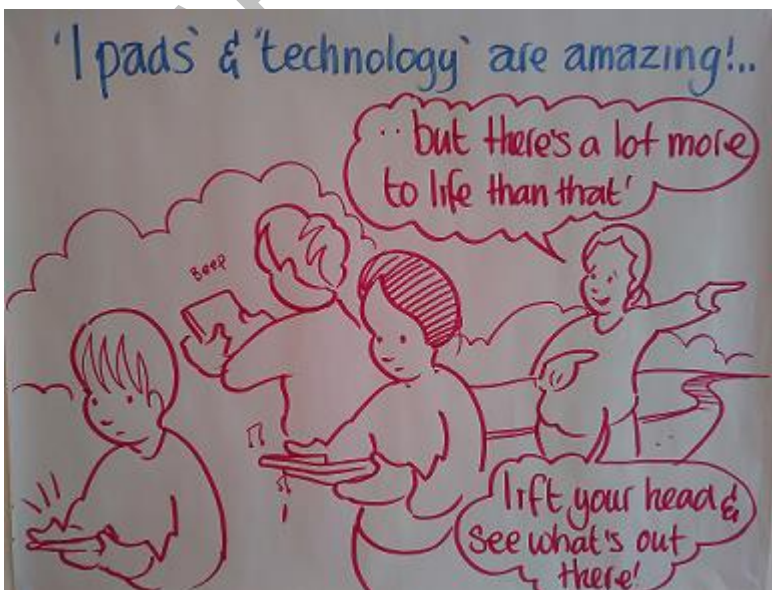 'I pads' & 'technology' are amazing!..
.. but there's a lot more
to life than that'
Beep
lift your head &
see what's out
there!